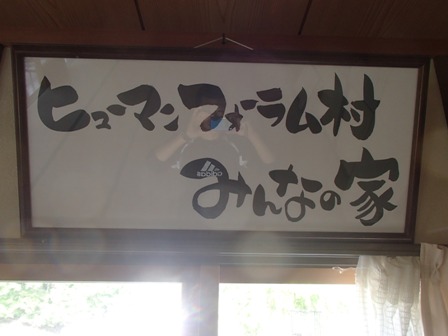 ヒューマンフォーラム村
みんなの家